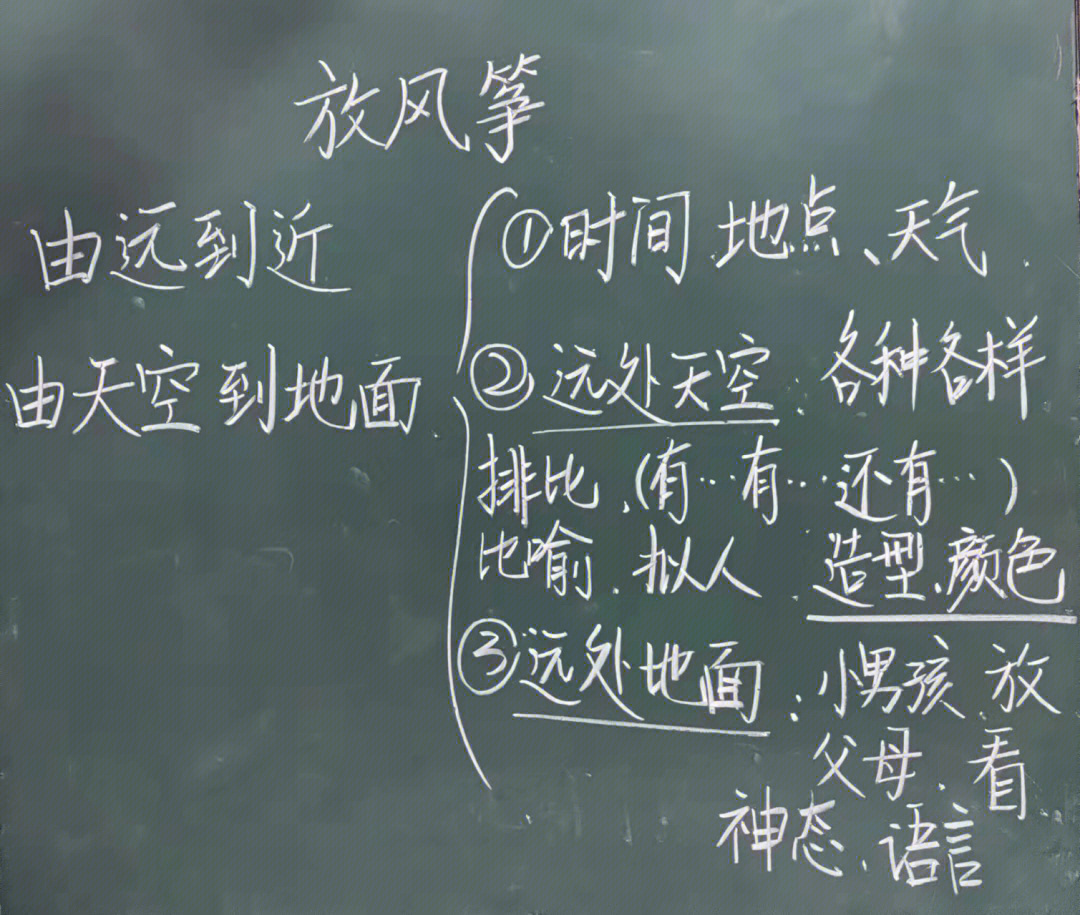 放风筝
由远到近
由天空到地面
①时间、地点、天气.
②远处天空：各种各样
排比、(有…有…还有…)
比喻、拟人、造型、颜色
③远处地面：小男孩 放
父母、看
神态、语言